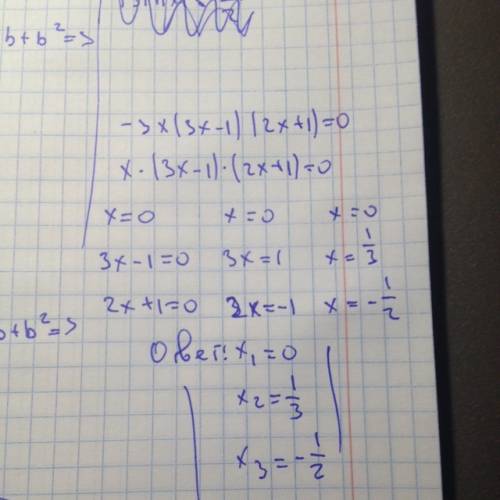 b+b²=>
-3x(3x-1)(2x+1)=0
x·(3x-1)·(2x+1)=0
x=0 x=0 x=0
3x-1=0 3x=1 x=1/3
2x+1=0 2x=-1 x=-1/2
b+b²=>
Ответ: x₁=0
x₂=1/3
x₃=-1/2